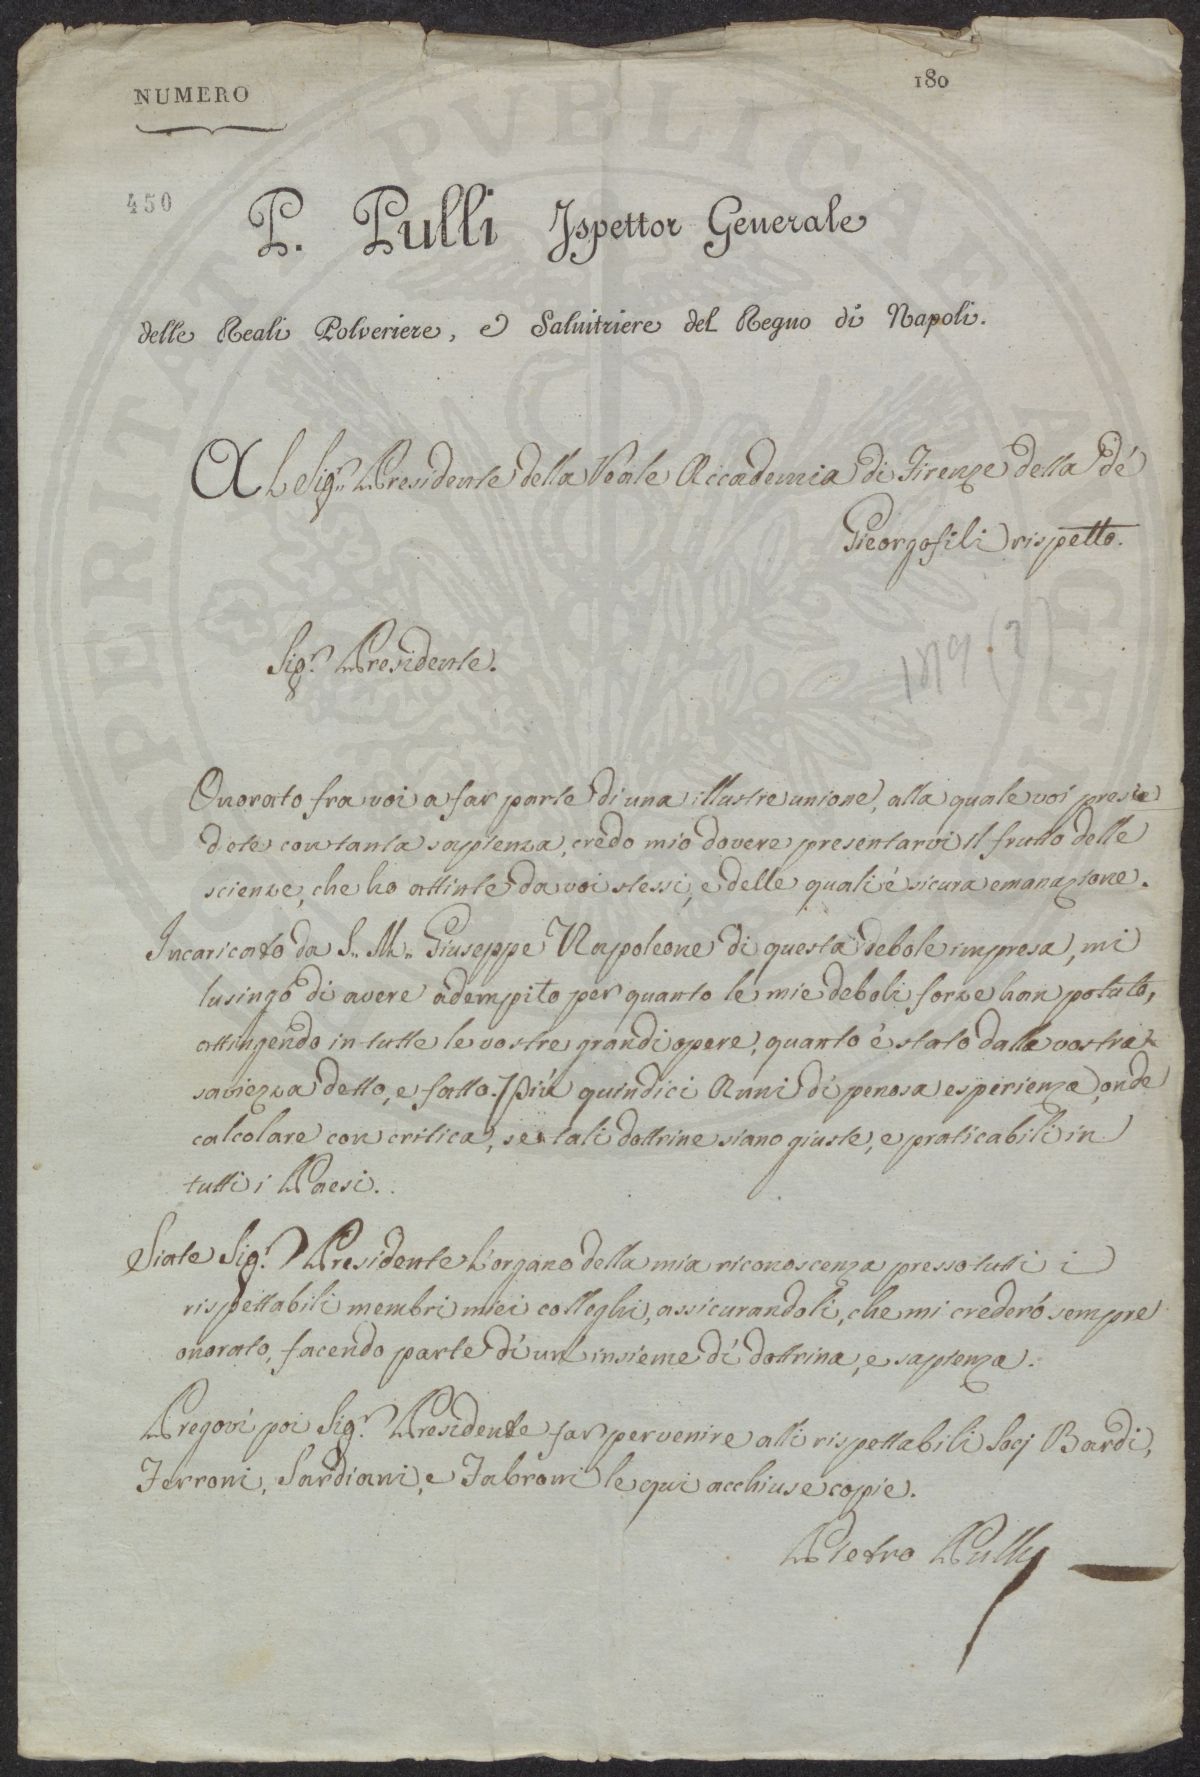 NUMERO
180
450
P. Pulli Ispettor Generale
delle Reali Polveriere, e Salnitriere del Regno di Napoli.
Al Sig.r Presidente della Reale Accademia di Firenze della dé
Georgofili rispetto.
1809 (?)
Sig.r Presidente.
Onorato fra voi a far parte di una illustre unione, alla quale voi presie
dete con tanta sapienza, credo mio dovere presentarvi il frutto delle
scienze, che ho attinte da voi stessi, e delle quali é sicura emanazione.
Incaricato da S. M. Giuseppe Napoleone di questa debole impresa, mi
lusingo di avere adempito per quanto le mie deboli forze han potuto,
attingendo in tutte le vostre grandi opere, quanto é stato dalla vostra
saviezza detto, e fatto. Più quindici Anni di penosa esperienza, onde
calcolare con critica, se tali dottrine siano giuste, e praticabili in
tutti i Paesi.
Siate Sig.r Presidente l'organo della mia riconoscenza presso tutti i
rispettabili membri miei colleghi, assicurandoli, che mi crederó sempre
onorato, facendo parte di un insieme di dottrina, e sapienza.
Pregovi poi Sig.r Presidente far pervenire alli rispettabili Socj Bardi,
Ferroni, Sardiani, e Fabroni le qui acchiuse copie.
Pietro Pulli
PERITAT PVBLICAE AVGEN